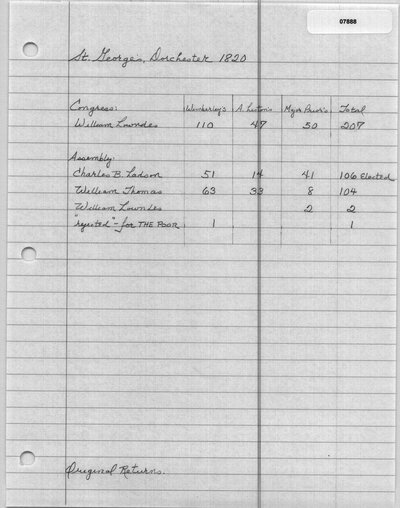 07888
St. George's, Dorchester 1820
Congress: Wimberley's A. Liston's Major Prior's Total
William Lowndes 110 47 50 207
Assembly:
Charles B. Ladson 51 14 41 106 Elected
William Thomas 63 33 8 104
William Lowndes 2 2
"rejected" - for THE POOR 1 1
Original Returns.